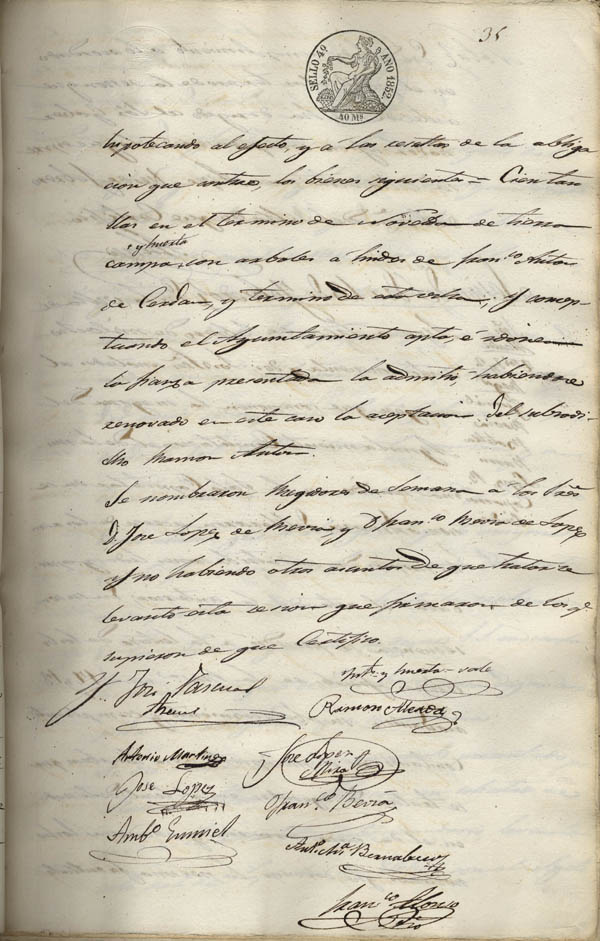 35
SELLO 4º AÑO 1852.
40 Ms.
hipotecando al efecto, y a las resultas de la obliga
cion que contrae, los bienes siguientes = Cien tau
llas en el termino de Novelda de tierra
y huerta
campa, con arboles a lindes de Franco Anton
de Cerdan, y termino de esta villa; y concep-
tuando el Ayuntamiento apta, é idonea
la fianza presentada la admitió, habiendose
renovado en este caso la aceptacion del subrodi-
cho Ramon Anton.
Se nombraron Regidores de Semana a los Sres
D. Jose Lopez de Mevia, y D. Franco Bevia de Lopez
y no habiendo otros asuntos de que tratar se
levantó esta sesion que firmaron de los qe
supieron de que Certifico.
Entre y huerta = vale
José Pascual
Ramon Alenda
Antonio Martinez
Jose Lopez
Mira
Jose Lopez
Franco Bevia
Ambo
Anto Ma Bernabeu
Franco Alonso